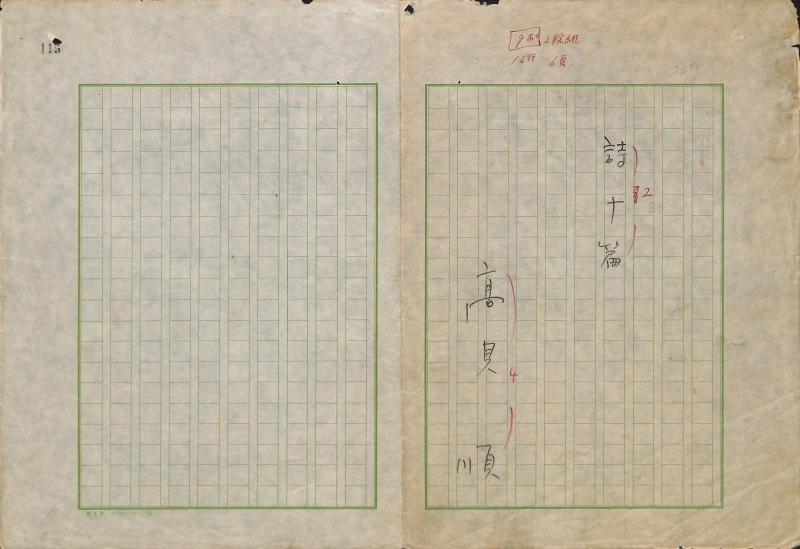 9ポ 2段組
16行 6頁
詩十篇
2
高見順
4